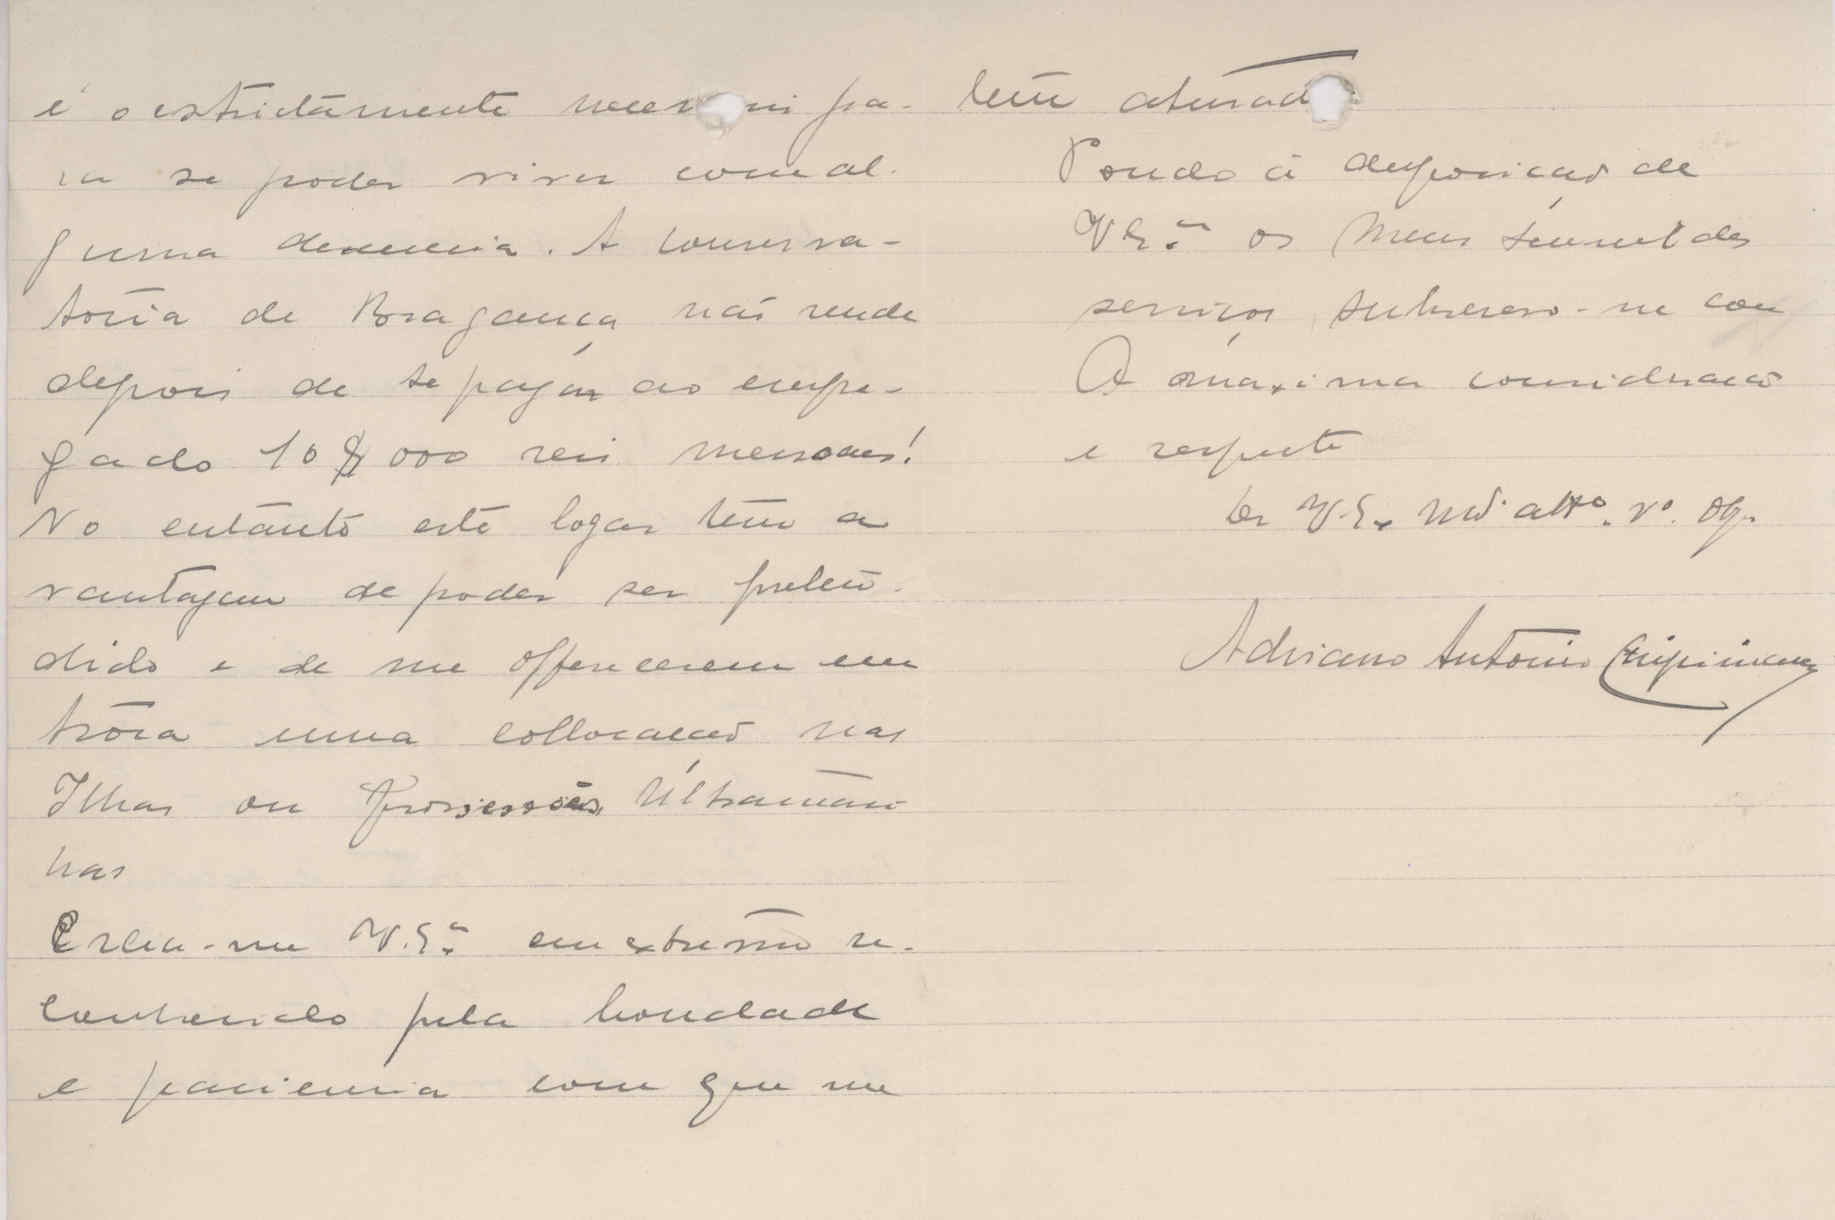 é o estrictamente necessari pa-
ra se poder viver com al-
guma decencia. A conserva-
tória de Bragança não rende
depois de se pagár ao empre-
gado 10$000 reis mensaes!
No entanto este logar tem a
vantagem de poder ser preten-
dido e de me offerecerem em
tróca uma collocação nas
Ilhas ou Possessões Ultramari-
nas
Creia-me V. Exª em extremo re-
conhecido pela bondade
e paciencia com que me
tem aturado
Pondo á desposição de
V Exª os meus
serviços subscrevo-me com
A máxima consideração
e respeito
De V. Ex. Mtº attº. vº. Obg.
Adriano Antonio